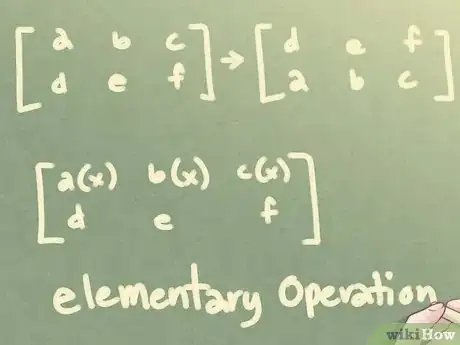 [a b c] → [d e f]
[d e f] [a b c]
[a(x) b(x) c(x)]
[d e f]
elementary Operation
wikiHow